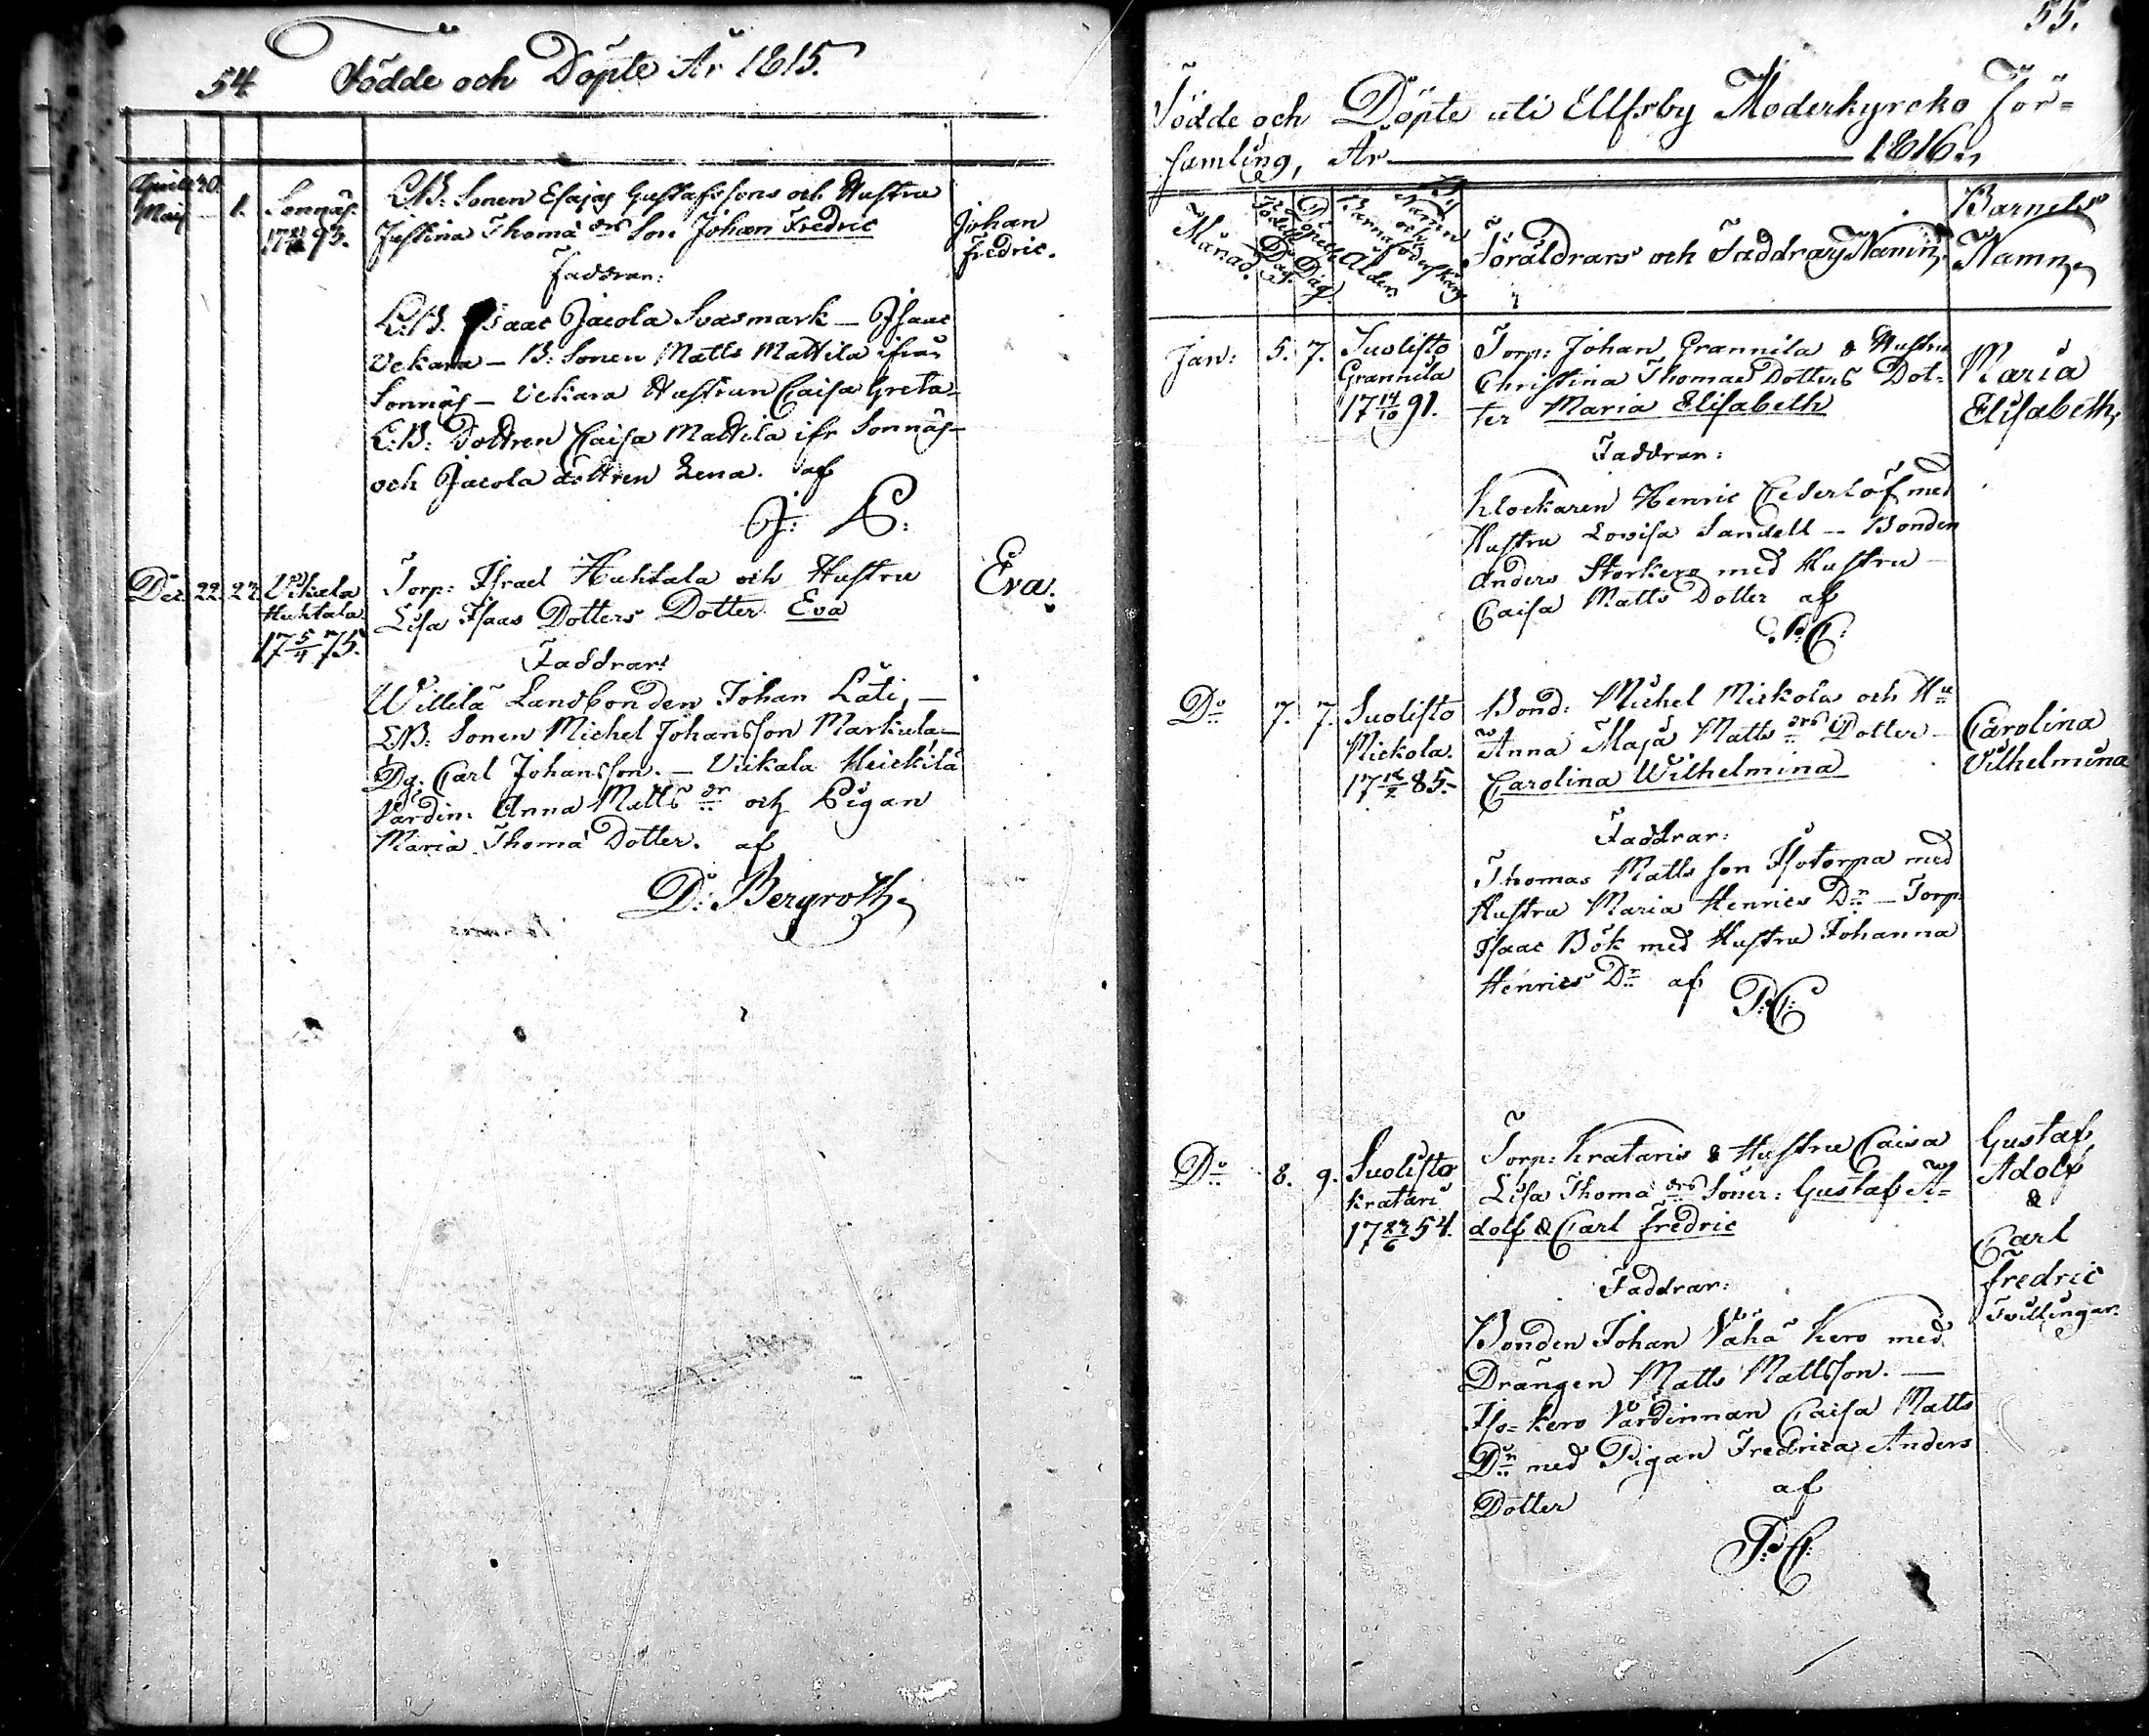 54. Födde och Döpte År 1815.
Aprill 30.
Maij 1. Sonnäs.
17 21/12 93.
L:B: Sonen Esajas Gustafssons och Hustru
Justina Thomæ drs Son Johan Fredric
Johan
Fredric.
Faddrar:
L:B. Isaac Jacola Svasmark – Isaac
Vekara – B: Sonen Matts Mattila ifrån
Sonnäs – Vekara Hustrun Caisa Greta –
L:B: Dottren Caisa Mattila ifr Sonnäs –
och Jacola dottren Lena. af
Dec. 22. 27. Vikala
Huhtala
17 5/4 75.
Torp: Israel Huhtala och Hustru
Lisa Isaas Dotters Dotter Eva
Eva.
Faddrar:
Willilä Landbonden Johan Lati, –
LB: Sonen Michel Johansson Markula –
Dg: Carl Johansson. – Vikala Heickilä
Värdin: Anna Matts dr och Pigan
Maria Thomæ Dotter. af
D: Bergroth,
55.
Födde och Döpte uti Ulfsby Moderkyrcko För=
samling, År 1816.
Månad.
Födelse Dag.
Döpelse Dag.
Namn och
Barnaföderskans
Ålder
Föräldrars och Faddrars Namn,
Barnets
Namn,
Jan: 5. 7. Suolisto
Grannila
17 14/10 91.
Torp: Johan Grannila & Hustru
Christina Thomæ Dotters Dot=
ter Maria Elisabeth
Maria
Elisabeth,
Faddrar:
Klockaren Henric Cederlöf med
Hustru Lovisa Sandell – Bonden
Anders Storkero med Hustru –
Caisa Matts Dotter af
P:C:
Do 7. 7. Suolisto
Mickola.
17 12/2 85.
Bond: Michel Mickola och Hu
Anna Maja Matts drs Dotter –
Carolina Wilhelmina
Carolina
Vilhelmina
Faddrar:
Thomas Matts son Isotorpa med
Hustru Maria Henrics Dr – Torp.
Isaac Bök med Hustru Johanna
Henrics Dr af
P:C:
Do 8. 9. Suolisto
Kratari
17 23/6 54.
Torp: Krataris & Hustru Caisa
Lisa Thomæ drs Söner: Gustaf A=
dolf & Carl Fredric
Gustaf
Adolf
&
Carl
Fredric
Tvillingar.
Faddrar:
Bonden Johan Vähä Kero med
Drängen Matts Mattsson. –
Iso=kero Värdinnan Caisa Matts
Dr med Pigan Fredrica Anders
Dotter af
P:C: